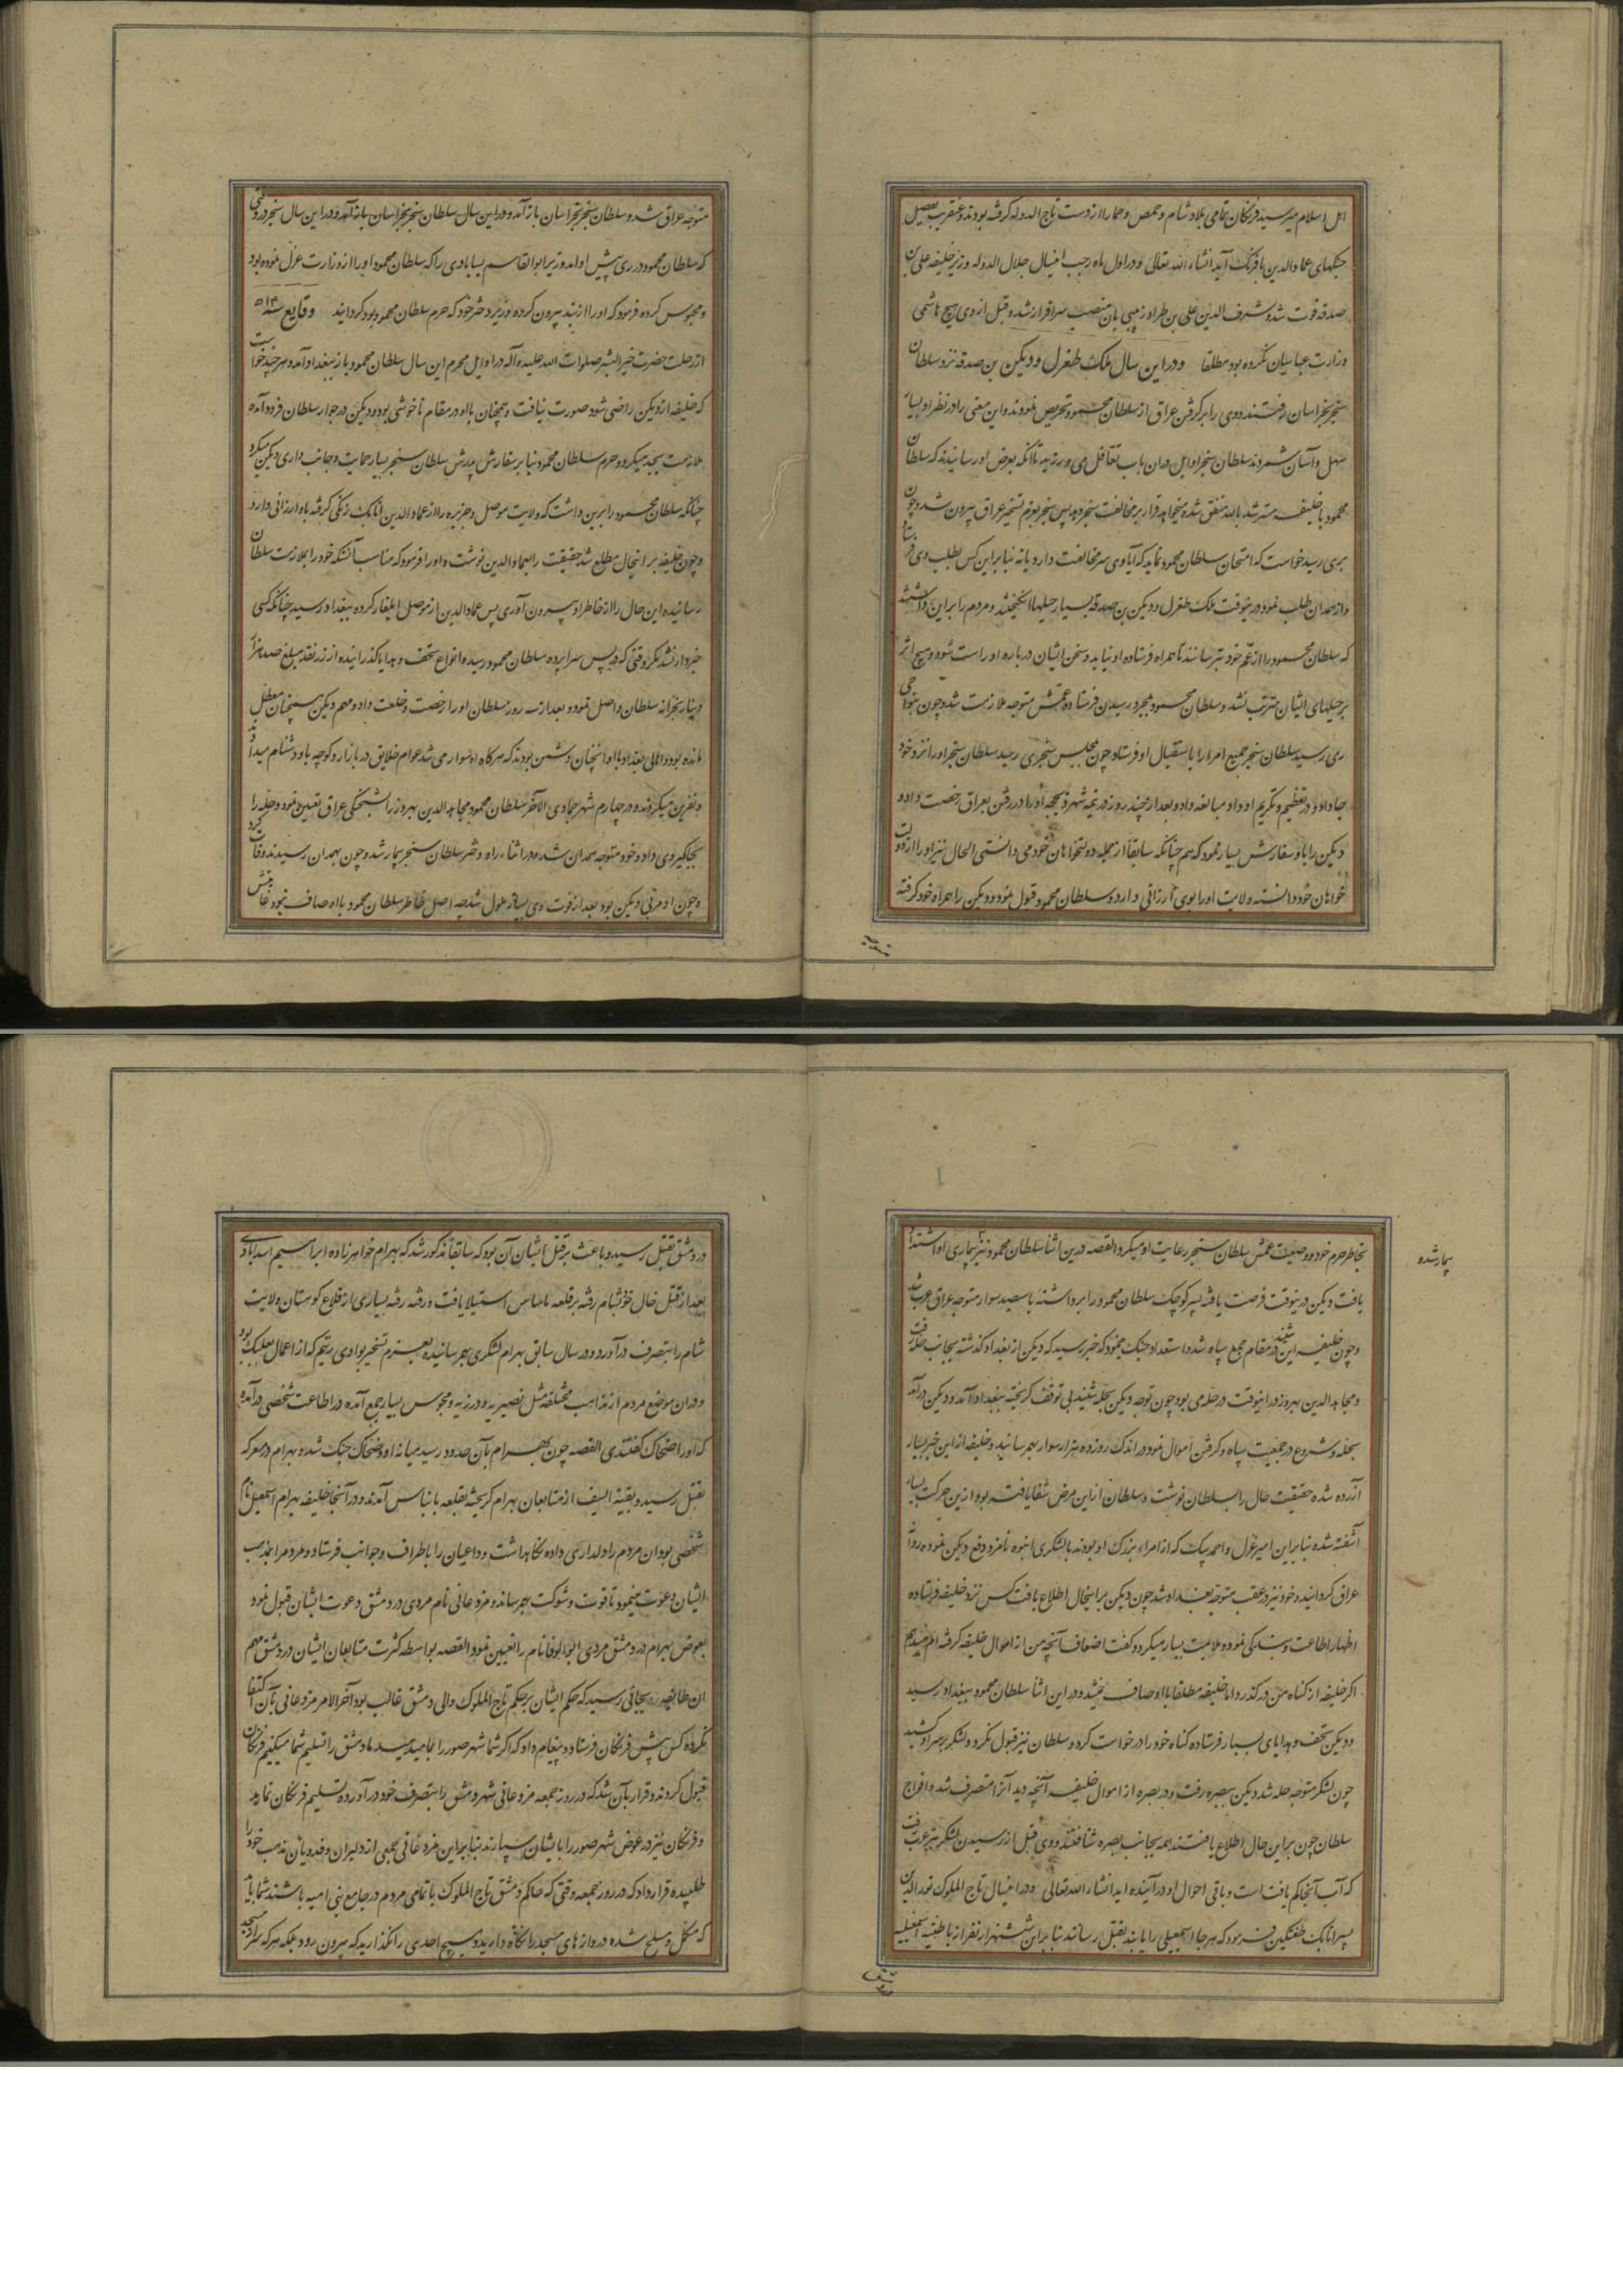 اهل اسلام میرسید فرنگان تمامی بلاد شام و حمص و حما را از دست تاج الدوله گرفته بودند و عنقریب بتفصیل
جنگهای عماد الدین با فرنگ آید انشاء الله تعالی و در اول ماه رجب اینسال جلال الدوله وزیر خلیفه علی بن
صدقه فوت شد و شرف الدین علی بن طراد زینبی بان منصب سرافراز شد و قبل از وی هیچ هاشمی
وزارت عباسیان نکرده بود مطلقا و در این سال ملک طغرل و دبیکن بن صدقه نزد سلطان
سنجر بخراسان رفتند و وی را بر گرفتن عراق از سلطان محمود تحریص نمودند و این معنی را در نظر او بسیار
سهل و آسان شمردند سلطان سنجر اوایل در ان باب تغافل می ورزید تا آنکه بعرض او رسانیدند که سلطان
محمود با خلیفه مسترشد بالله متفق شده میخواهد قرار بر مخالفت سنجر دهد پس سنجر بعزم تسخیر عراق بیرون شد و چون
بری رسید خواست که امتحان سلطان محمود نماید که آیا وی سر مخالفت دارد یا نه بنابراین کس بطلب وی فرستاد
و از همدان طلب نمود درینوقت ملک طغرل و دبیکن بن صدقه بسیار حیلها انگیختند و مردم را بر این داشتند
که سلطان محمود را از عم خود بترسانند تا همراه فرستاده او نیاید و سخن ایشان درباره او راست شود و هیچ اثر
بر حیلهای ایشان مترتب نشد و سلطان محمود بمجرد رسیدن فرستاده عمش متوجه ملازمت شد و چون بنواحی
ری رسید سلطان سنجر جمیع امرا را باستقبال او فرستاد و چون بمجلس سنجری رسید سلطان سنجر او را نزد خود
جا داد و در تعظیم و تکریم او داد مبالغه داد و بعد از چند روز در نیمه شهر ذیحجه او را در رفتن بعراق رخصت داد و
دبیکن را باو سفارش بسیار نمود که هم چنانکه سابقا از جمله دولتخواهان خود می دانستی الحال نیز او را از دولت
خواهان خود دانسته ولایت او را بوی ارزانی دارد و سلطان محمود قبول نمود و دبیکن را همراه خود گرفته
متوجه عراق شد و سلطان سنجر بخراسان باز آمد و در این سال سلطان سنجر بخراسان باز آمد و در این سال سنجر در وقتی
که سلطان محمود در ری پیش او آمد وزیر ابو القاسم نسابادی را که سلطان محمود او را از وزارت عزل نموده بود
و محبوس کرده فرمود که او را از بند بیرون کرده وزیر دختر خود که حرم سلطان محمود بود گردانیدند وقایع سنه ۵۱۳
از رحلت حضرت خیر البشر صلوات الله علیه و آله در اوایل محرم این سال سلطان محمود باز ببغداد آمد و هر چند خواست
که خلیفه از دبیکن راضی شود صورت نیافت و همچنان با او در مقام ناخوشی بود و دبیکن در جوار سلطان فرود آمده
ملازمت بجد میکرد و حرم سلطان محمود بنابر سفارش پدرش سلطان سنجر بسیار حمایت و جانب داری دبیکن میکرد
چنانکه سلطان محمود را برین داشت که ولایت موصل و جزیره را از عماد الدین اتابک زنگی گرفته باو ارزانی دارد
و چون خلیفه بر اینحال مطلع شد حقیقت را بعماد الدین نوشت و او را فرمود که مناسب آنستکه خود را بملازمت سلطان
رسانیده این حال را از خاطر او بیرون آوری پس عماد الدین از موصل ایلغار کرده ببغداد رسید چنانکه کسی
خبردار نشد مگر وقتی که در پس سراپرده سلطان محمود رسیده و انواع تحف و هدایا گذرانیده از زر نقد مبلغ صد هزار
دینار بخزانه سلطان واصل نمود و بعد از سه روز سلطان او را رخصت و خلعت داد و مهم دبیکن همچنان معطل
مانده بود و اهالی بغداد با او انچنان دشمن بودند که هر گاه او سوار می شد عوام خلایق در بازار و کوچه باو دشنام میدادند
و نفرین میکردند و در چهارم شهر جمادی الآخر سلطان محمود مجاهد الدین بهروز را بشحنگی عراق تعیین نمود و حله را
بجاگیر وی داد و خود متوجه همدان شد و در اثناء راه دختر سلطان سنجر بیمار شد و چون بهمدان رسیدند وفات کرد
و چون او مربی دبیکن بود بعد از فوت وی بسیار ملول شد چه اصل خاطر سلطان محمود با او صاف نبود غایتش
بخاطر حرم خود و وصیت عمش سلطان سنجر رعایت او میکرد القصه درین اثنا سلطان محمود نیز بیماری او اشتداد
بیمار شد و
یافت دبیکن درینوقت فرصت یافته پسر کوچک سلطان محمود را برداشته با سیصد سوار متوجه عراق عرب شد
و چون خلیفه این شنید در مقام جمع سپاه شد و استعداد جنگ مینمود که خبر رسید که دبیکن از بغداد گذشته بجانب حله رفت
و مجاهد الدین بهروز در اینوقت در حله می بود چون توجه دبیکن بحله شنید بی توقف گریخته ببغداد آمد و دبیکن در آمد
بحله و شروع در جمعیت سپاه و گرفتن اموال نمود در اندک روز ده هزار سوار بهم رسانید و خلیفه از این خبر بسیار
آزرده شده حقیقت حال را بسلطان نوشت و سلطان از این مرض شفا یافته بود ازین حرکت بسیار
آشفته شده بنابراین امیر غزل و احمد بیک که از امراء بزرگ او بودند با لشکری انبوه نامزد دفع دبیکن نموده روانه
عراق گردانید و خود نیز در عقب متوجه بغداد شد چون دبیکن بر اینحال اطلاع یافت کس نزد خلیفه فرستاده
اظهار اطاعت و بندگی نمود و ملایمت بسیار میکرد و گفت اضعاف آنچه من از اموال خلیفه گرفته ام میدهم
اگر خلیفه از گناه من درگذرد اما خلیفه مطلقا با او صاف نمیشد و در این اثنا سلطان محمود ببغداد رسید
و دبیکن تحف و هدایای بسیار فرستاده گناه خود را درخواست کرد و سلطان نیز قبول نکرد و لشکر بر سر او کشید
چون لشکر متوجه حله شد دبیکن ببصره رفت و در بصره از اموال خلیفه آنچه دید آنرا متصرف شد و افواج
سلطان چون بر این حال اطلاع یافتند همه بجانب بصره شتافتند و وی قبل از رسیدن لشکر بتیر عرب رفت
که آب آنجا کم یافت است و باقی احوال او در آینده آید انشاء الله تعالی و در اینسال تاج الملوک نور الدین
پسر اتابک طغتکین فرمود که هر جا اسمعیلی را یابند بقتل رسانند بنابراین شش هزار نفر از باطنیه اسمعیلیه
در دمشق
در دمشق بقتل رسید و باعث بر قتل ایشان آن بود که سابقا مذکور شد که بهرام خواهر زاده ابراهیم اسدابادی
بعد از قتل خال خود بشام رفته بر قلعه بانیاس استیلا یافت و رفته رفته بسیاری از قلاع کوهستان ولایت
شام را بتصرف درآورد و در سال سابق بهرام لشکری بهم رسانیده بعزم تسخیر بوادی رتیم که از اعمال بعلبک بود
و در ان موضع مردم از مذاهب مختلفه مثل نصیریه و درزیه و مجوس بسیار جمع آمده در اطاعت شخصی درآمده
که او را ضحاک گفتندی القصه چون بهرام بآن حدود رسید میانه او و ضحاک جنگ شد و بهرام در معرکه
بقتل رسید و بقیة السیف از متابعان بهرام گریخته بقلعه بانیاس آمدند و در آنجا خلیفه بهرام اسمعیل نام
شخصی بود ان مردم را دلداری داده نگاهداشت و داعیان را باطراف و جوانب فرستاد و مردم را بمذهب
ایشان دعوت مینمود تا قوت و شوکت بهم رساند و مزدغانی نام مردی در دمشق دعوت ایشان قبول نمود
بعوض بهرام در دمشق مردی ابو الوفا نام را تعیین نمود القصه بواسطه کثرت متابعان ایشان در دمشق مهم
ان طایفه بجائی رسید که حکم ایشان بر حکم تاج الملوک والی دمشق غالب بود آخر الامر مزدغانی بآن اکتفا
نکرده کس پیش فرنگان فرستاد و پیغام داد که اگر شما شهر صور را بما میدهید ما دمشق را تسلیم شما میکنیم فرنگان
قبول کردند و قرار بآن شد که در روز جمعه مزدغانی شهر دمشق را بتصرف خود درآورده تسلیم فرنگان نماید
و فرنگان نیز در عوض شهر صور را بایشان سپارند بنابراین مزدغانی جمعی از دلیران و فدویان مذهب خود را
طلبیده قرار داد که در روز جمعه وقتی که حاکم دمشق تاج الملوک با تمامی مردم در جامع بنی امیه باشند شما باید
که مکمل و مسلح شده دروازهای مسجد را نگاه دارید و هیچ احدی را نگذارید که بیرون رود بلکه هر که سر از مسجد